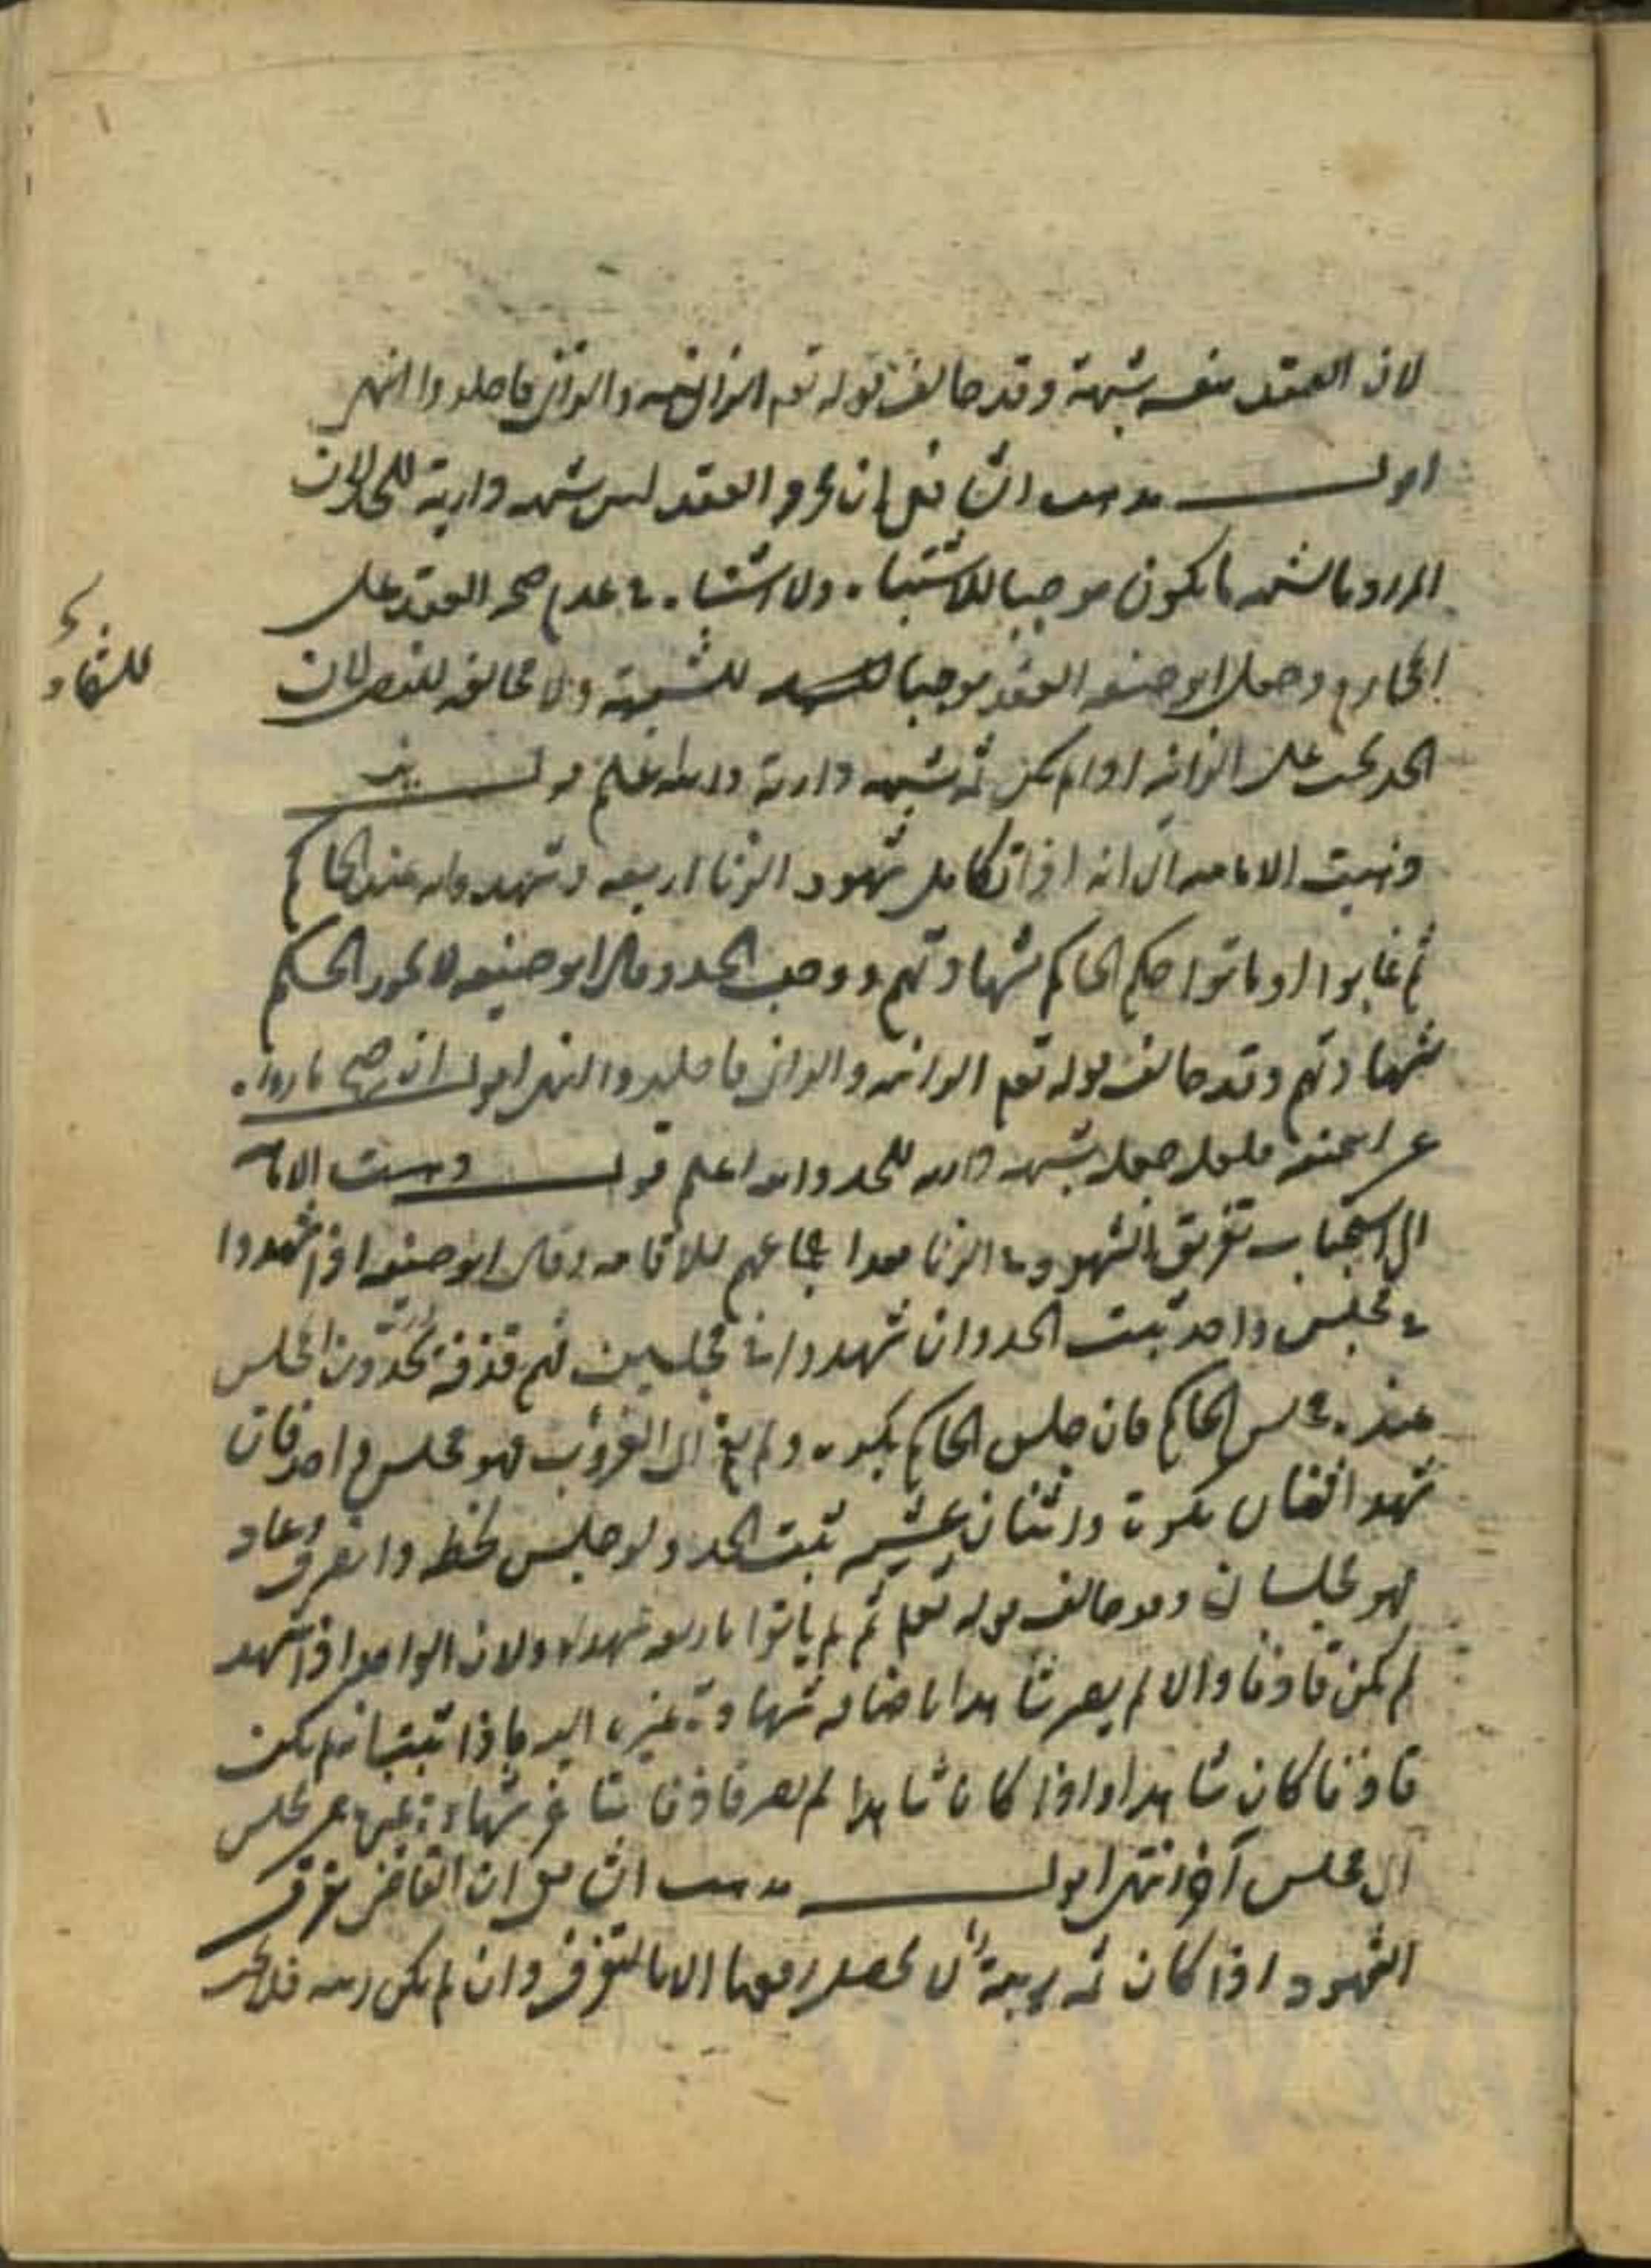 لان العقد بنفسه شبهة وقد خالف قوله تعم الزانية والزاني فاجلدوا انتهى
اقول مذهب الشافعي ان مجرد العقد ليس شبهه دارية للحد لان
المراد بالشبهه ما يكون موجبا للاشتباه ولا اشتباه في عدم صحه العقد على
المحارم وجعل ابو حنيفه العقد موجبا للشبهة ولا مخالفه للنص لان
الحد يجب على الزانيه اذا لم يكن ثمه شبهه دارية والله اعلم قوله
وذهبت الاماميه الى انه اذا تكامل شهود الزنا اربعه وشهدوا به عند الحاكم
ثم غابوا او ماتوا حكم الحاكم بشهادتهم ووجب الحد وقال ابو حنيفه لا يجوز الحكم
بشهادتهم وقد خالف قوله تعم الزانيه والزاني فاجلدوا انتهى اقول ان صح ما رواه
عن ابي حنيفه فلعله جعله شبهه داريه للحد والله اعلم قوله وذهبت الاماميه
الى استحباب تفريق الشهود في الزنا بعد اجتماعهم للاقامه وقال ابو حنيفه اذا شهدوا
في مجلس واحد ثبت الحد وان شهدوا في مجلسين فهم قذفة يحدون والمجلس
عنده مجلس الحاكم فان جلس الحاكم بكره ولم يقم الى الغروب فهو مجلس واحد فان
شهد اثنان بكرة واثنان عشية ثبت الحد ولو جلس لحظه وانصرف وعاد
فهو مجلسان وهو خالف قوله تعم ثم لم ياتوا باربعه شهداء ولان الواحد اذا شهد
لم يكن قاذفا والا لم يصر شاهدا باضافه شهادة غيره اليه فاذا ثبت انه لم يكن
قاذفا كان شاهدا واذا كان شاهدا لم يصر قاذفا بتاخر شهادة غيره عن مجلس
الى مجلس آخر انتهى اقول مذهب الشافعي ان القاضي يفرق
الشهود اذا كان ثمه ريبة لا يحصل رفعها الا بالتفرق وان لم يكن ريبه فلا يجب
للشهاد